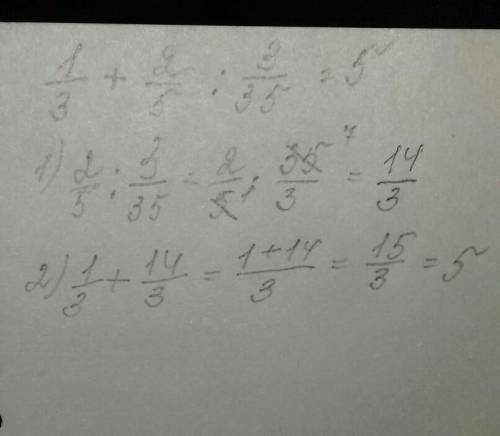 1/3 + 2/5 : 3/35 = 5
1) 2/5 : 3/35 = 2/5 1 · 35 7/3 = 14/3
2) 1/3 + 14/3 = 1+14/3 = 15/3 = 5